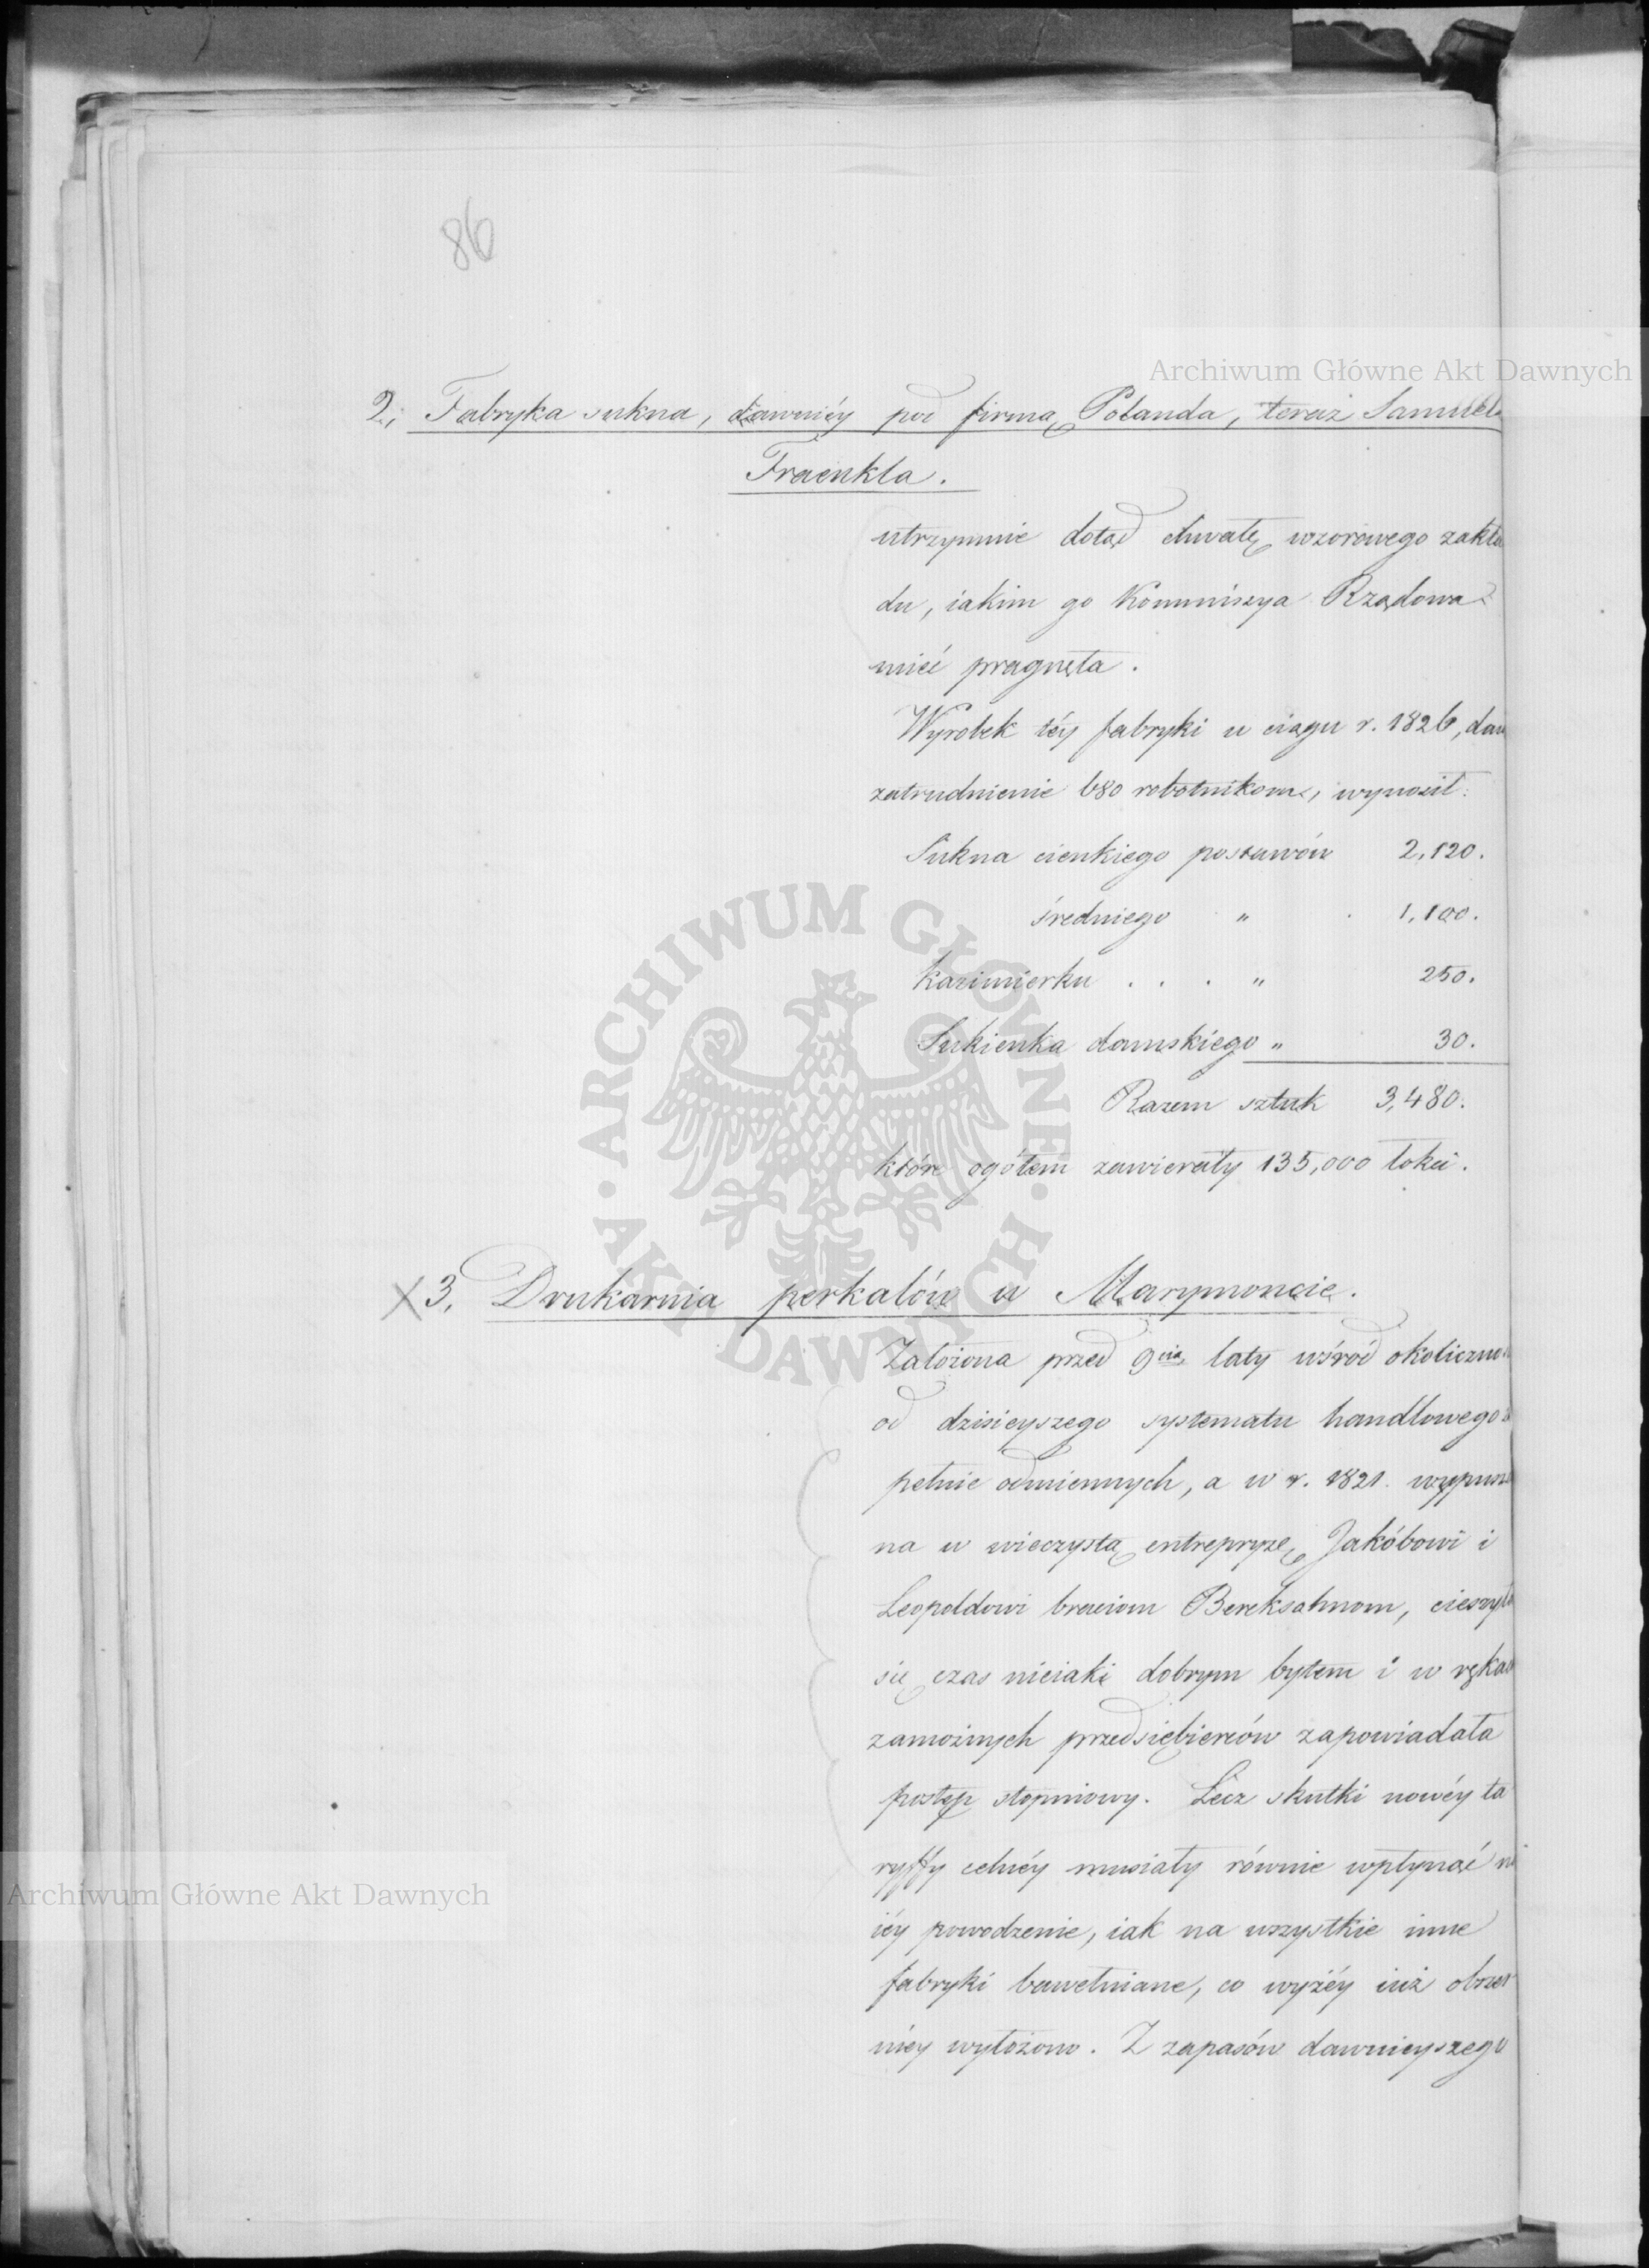 86
Archiwum Główne Akt Dawnych
2, Fabryka sukna, dawniéy pod firmą Polanda, teraz Samuela
Fraenkla.
utrzymuie dotąd chwałę wzorowego zakła
du, iakim go Kommissya Rządowa
mieć pragnęła.
Wyrobek téy fabryki w ciągu r. 1826, daw
zatrudnienie 680 robotnikom, wynosił:
Sukna cienkiego postawów 2,120.
średniego " 1,100.
kazimierku . . . " 250.
Sukienka damskiego " 30.
Razem sztuk 3,480.
które ogółem zawierały 135,000 łokci.
ARCHIWUM GŁÓWNE · AKT DAWNYCH ·
X 3, Drukarnia perkalów w Marymoncie.
Założona przed 9cią laty wśród okoliczno
od dzisieyszego systematu handlowego z
pełnie odmiennych, a w r. 1821. wypusz
na w wieczystą entrepryzę Jakóbowi i
Leopoldowi braciom Bereksohnom, cieszyła
się czas nieiaki dobrym bytem i w ręka
zamożnych przedsiębierców zapowiadała
postęp stopniowy. Lecz skutki nowéy ta
ryffy celnéy musiały równie wpłynąć na
iéy powodzenie, iak na wszystkie inne
Archiwum Główne Akt Dawnych
fabryki bawełniane, co wyżéy iuż obszer
niey wyłożono. Z zapasów dawnieyszego